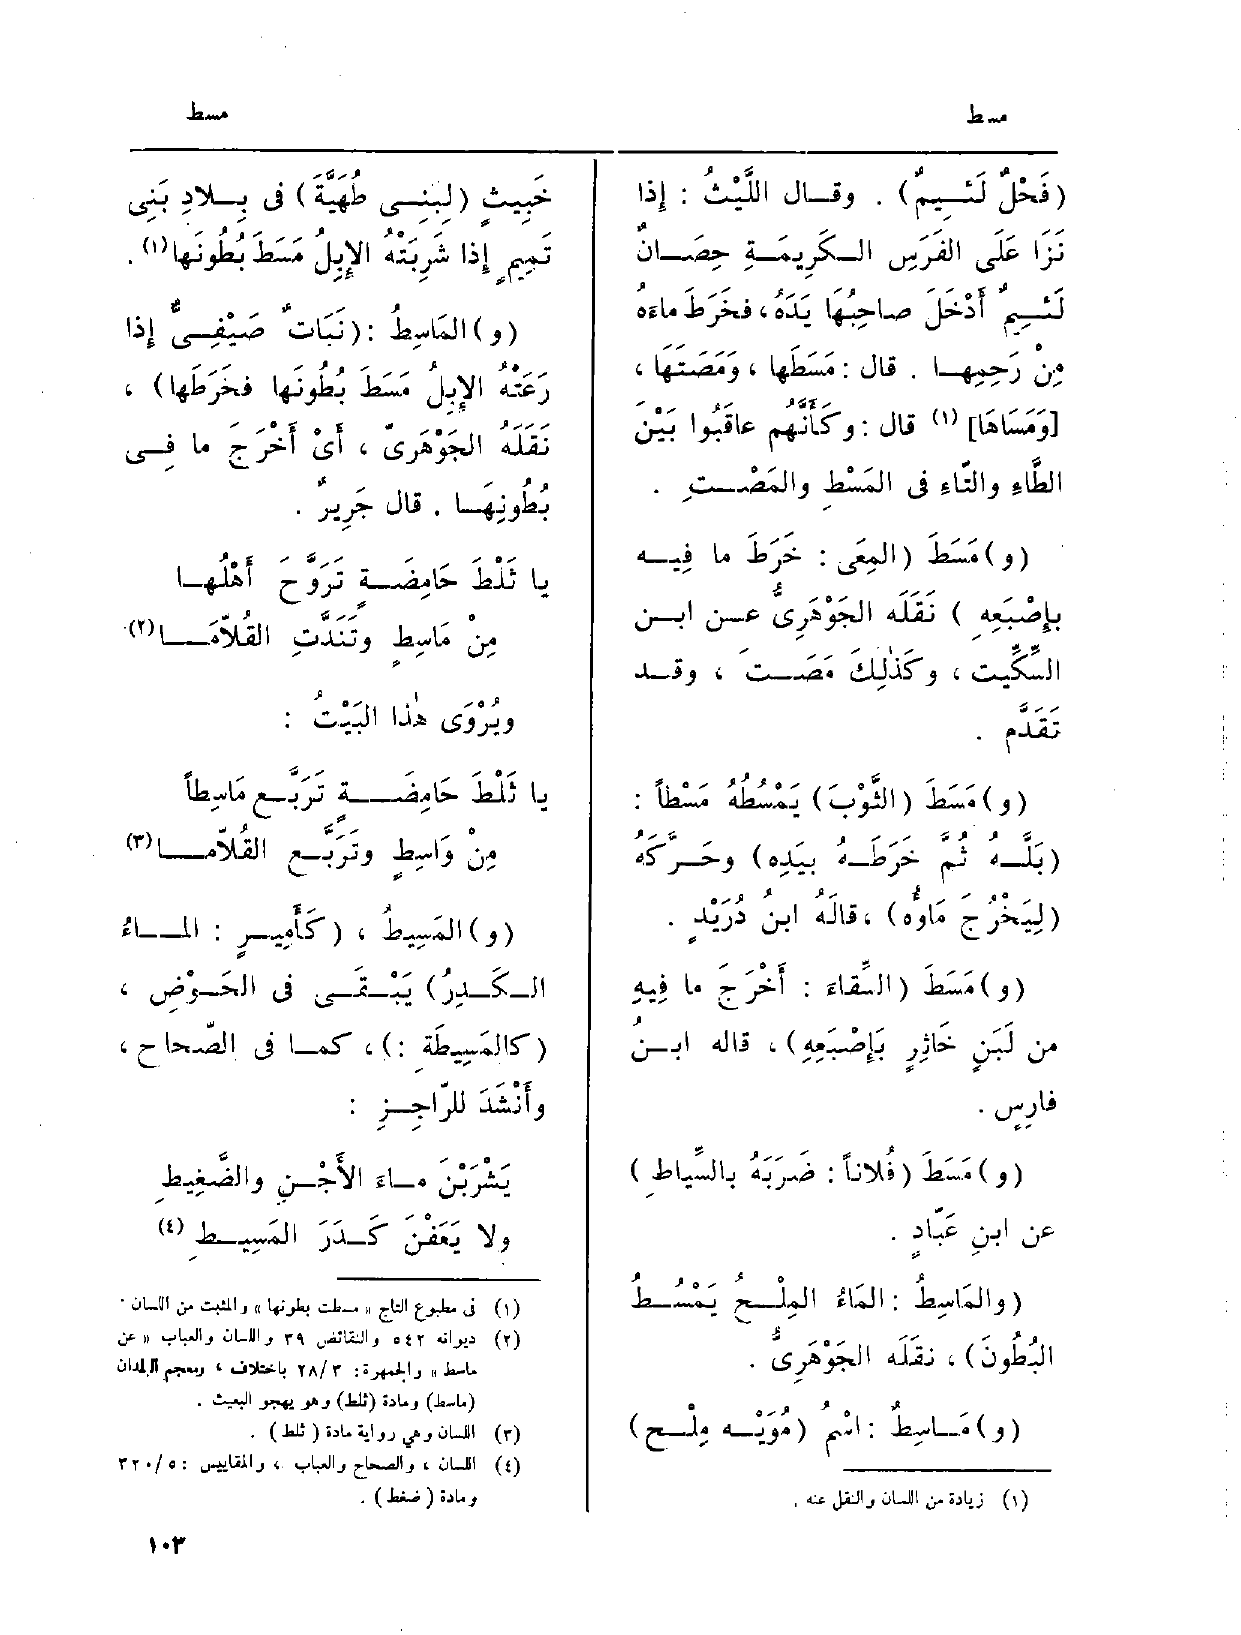 مسط
مسط
(فَحْلٌ لَئِيمٌ) . وقال اللَّيْثُ : إذا
نَزَا عَلَى الفَرَسِ الكَرِيمَةِ حِصَانٌ
لَئِيمٌ أَدْخَلَ صاحِبُهَا يَدَهُ ، فخَرَطَ ماءهُ
مِنْ رَحِمِها . قال : مَسَطَها ، وَمَصَتَها ،
[وَمَسَاهَا] (١) قال : وكَأَنَّهم عاقَبُوا بَيْنَ
الطَّاءِ والتّاءِ فى المَسْطِ والمَصْتِ .
(و) مَسَطَ (المِعَى : خَرَطَ ما فِيه
بإِصْبَعِه ) نَقَلَه الجَوْهَرِىُّ عن ابن
السِّكِّيت ، وكَذٰلِكَ مَصَتَ ، وقد
تَقَدَّم .
(و) مَسَطَ (الثَّوْبَ) يَمْسُطُهُ مَسْطاً :
(بَلَّهُ ثُمَّ خَرَطَهُ بيَدِه) وحَرَّكَهُ
(لِيَخْرُجَ مَاؤُه) ، قالَهُ ابنُ دُرَيْدٍ .
(و) مَسَطَ (السِّقاءَ : أَخْرَجَ ما فِيهِ
من لَبَنٍ خَاثِرٍ بَإِصْبَعِهِ) ، قاله ابنُ
فارِسٍ .
(و) مَسَطَ (فُلاناً : ضَرَبَهُ بالسِّياطِ )
عن ابنِ عَبّادٍ .
(والمَاسِطُ : المَاءُ المِلْحُ يَمْسُطُ
البُطُونَ) ، نقَلَه الجَوْهَرِىُّ .
(و) مَاسِطٌ : اسْمُ (مُوَيْه مِلْحٍ)
(١) زيادة من اللسان والنقل عنه .
خَبِيثٍ (لِبَنِى طُهَيَّةَ) فى بِلادِ بَنِى
تَمِيمٍ إذا شَرِبَتْهُ الإِبِلُ مَسَطَ بُطُونَها(١) .
(و) المَاسِطُ : (نَبَاتٌ صَيْفِىٌّ إذا
رَعَتْهُ الإِبِلُ مَسَطَ بُطُونها فخَرَطَها) ،
نَقَلَهُ الجَوْهَرِىّ ، أَىْ أَخْرَجَ ما فِى
بُطُونِهَا . قال جَرِيرٌ .
يا ثَلْطَ حَامِضَةٍ تَرَوَّحَ أَهْلُها
مِنْ مَاسِطٍ وتَنَدَّتِ القُلاّمَا(٢)
ويُرْوَى هٰذا البَيْتُ :
يا ثَلْطَ حَامِضَةٍ تَرَبَّع مَاسِطاً
مِنْ وَاسِطٍ وتَرَبَّع القُلاّمَا(٣)
(و) المَسِيطُ ، (كَأَمِيرٍ : الماءُ
الكَدِرُ) يَبْقَى فى الحَوْضِ ،
(كالمَسِيطَةِ :) ، كما فى الصّحاحِ ،
وأَنْشَدَ للرّاجِزِ :
يَشْرَبْنَ ماءَ الأَجْنِ والضَّغِيطِ
ولا يَعَفْنَ كَدَرَ المَسِيطِ (٤)
(١) فى مطبوع التاج « مسطت بطونها » والمثبت من اللسان .
(٢) ديوانه ٥٤٢ والنقائض ٣٩ واللسان والعباب « عن
ماسط » والجمهرة : ٢٨/٣ باختلاف ، ومعجم البلدان
(ماسط) ومادة (ثلط) وهو يهجو البعيث .
(٣) اللسان وهي رواية مادة ( ثلط ) .
(٤) اللسان ، والصحاح والعباب ، والمقاييس : ٣٢٠/٥
ومادة ( ضغط ) .
١٠٣